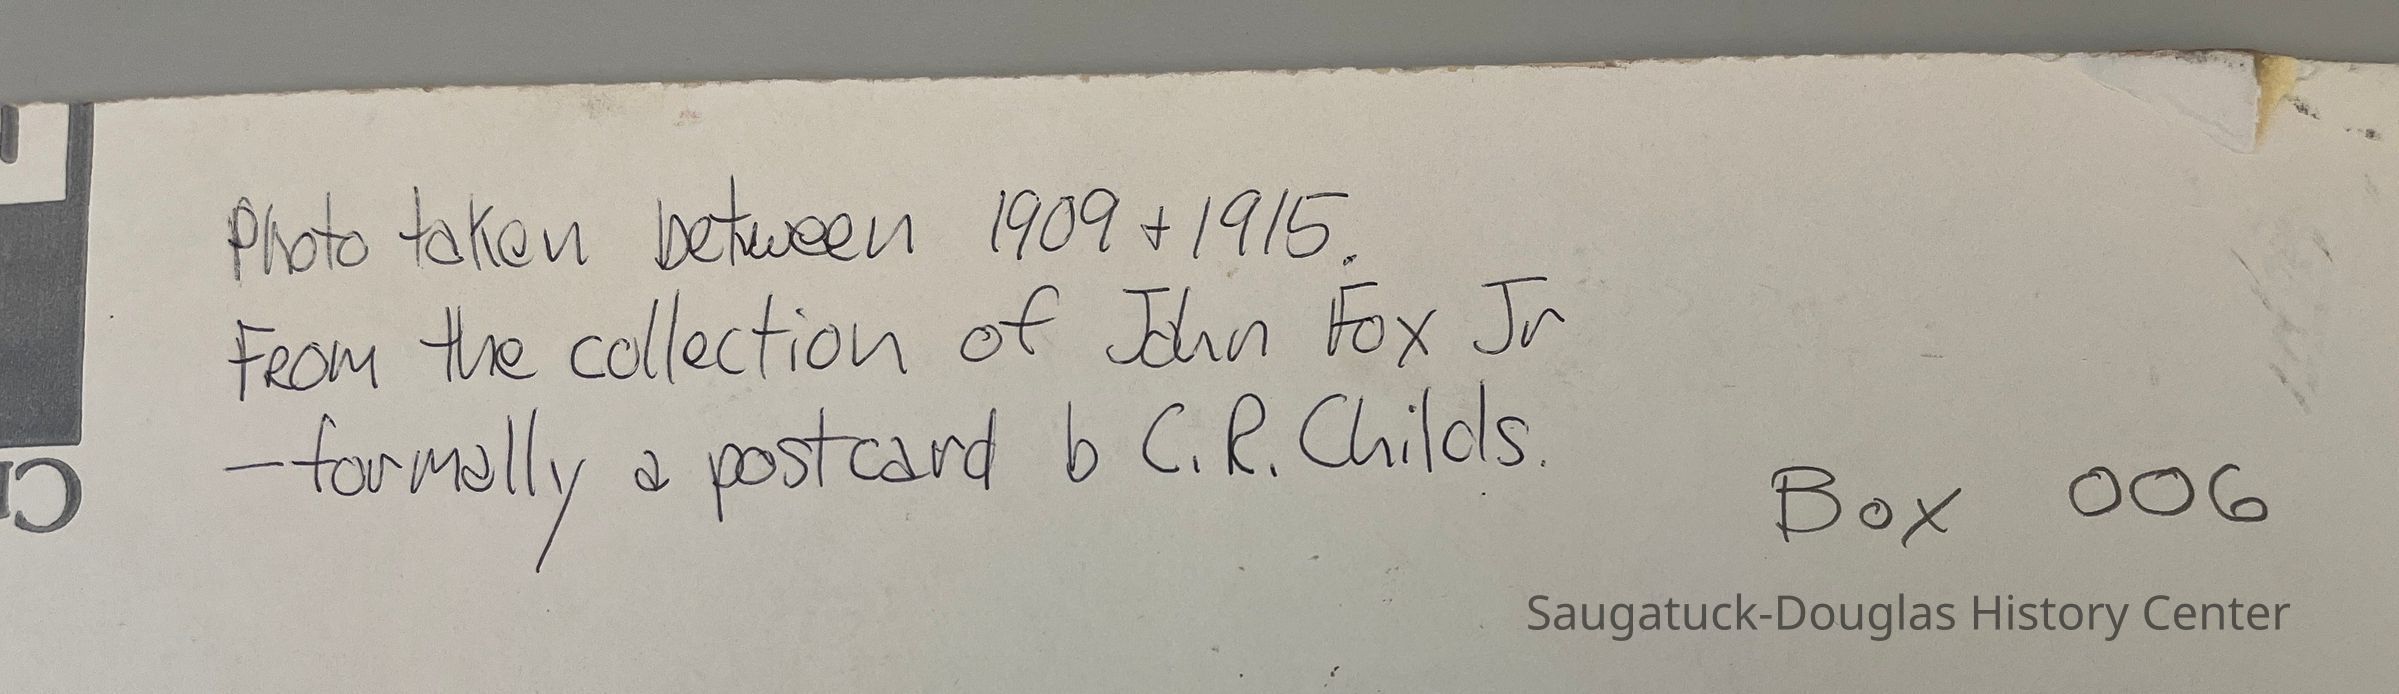 Photo taken between 1909 + 1915.
From the collection of John Fox Jr
- formally a postcard b C.R. Childs.
Box 006
Saugatuck-Douglas History Center